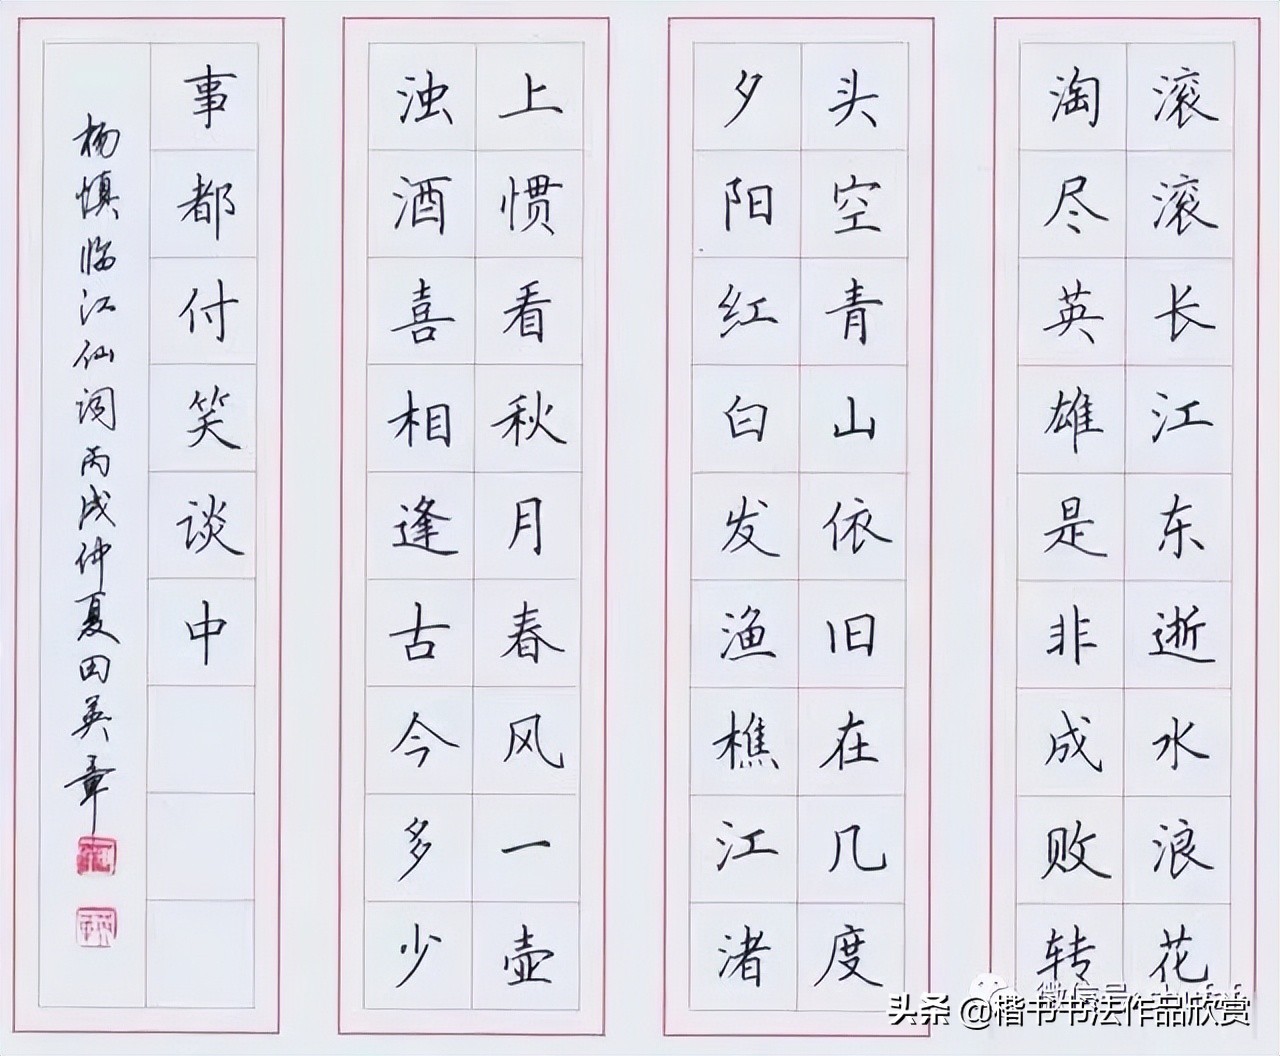 滚滚长江东逝水浪花
淘尽英雄是非成败转
头空青山依旧在几度
夕阳红白发渔樵江渚
上惯看秋月春风一壶
浊酒喜相逢古今多少
事都付笑谈中
杨慎临江仙词丙戌仲夏田英章
头条 @楷书书法作品欣赏